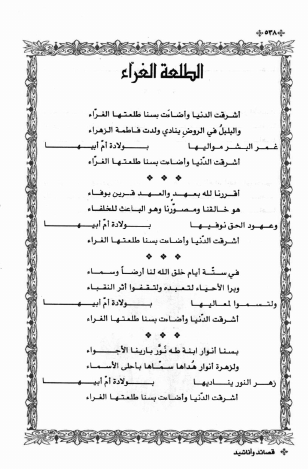 ٥٣٨
الطلعة الغراء
أشرقت الدنيا وأضاءت بسنا طلعتها الغرّاء
والبلبلُ في الروض ينادي ولدت فاطمة الزهراء
غمر البشر مواليها بولادة أمّ أبيها
أشرقت الدّنيا وأضاءت بسنا طلعتها الغرّاء
أقررنا لله بعهدٍ والعهد قرين بوفاء
هو خالقنا ومصوّرنا وهو الباعث للخلفاء
وعهود الحق نوفّيها بولادة أمّ أبيها
أشرقت الدّنيا وأضاءت بسنا طلعتها الغراء
في ستّة أيام خلق الله لنا أرضاً وسماء
وبرا الأحياء لتعبده ولتقفوا أثر النقباء
ولتسموا لمعاليها بولادة أمّ أبيها
أشرقت الدّنيا وأضاءت بسنا طلعتها الغراء
بسنا أنوار ابنة طه نوّر بارينا الأجواء
ولزهرة أنوار هُداها سمّاها بأحلى الأسماء
زهر النور يناديها بولادة أمّ أبيها
أشرقت الدّنيا وأضاءت بسنا طلعتها الغراء
قصائد وأناشيد